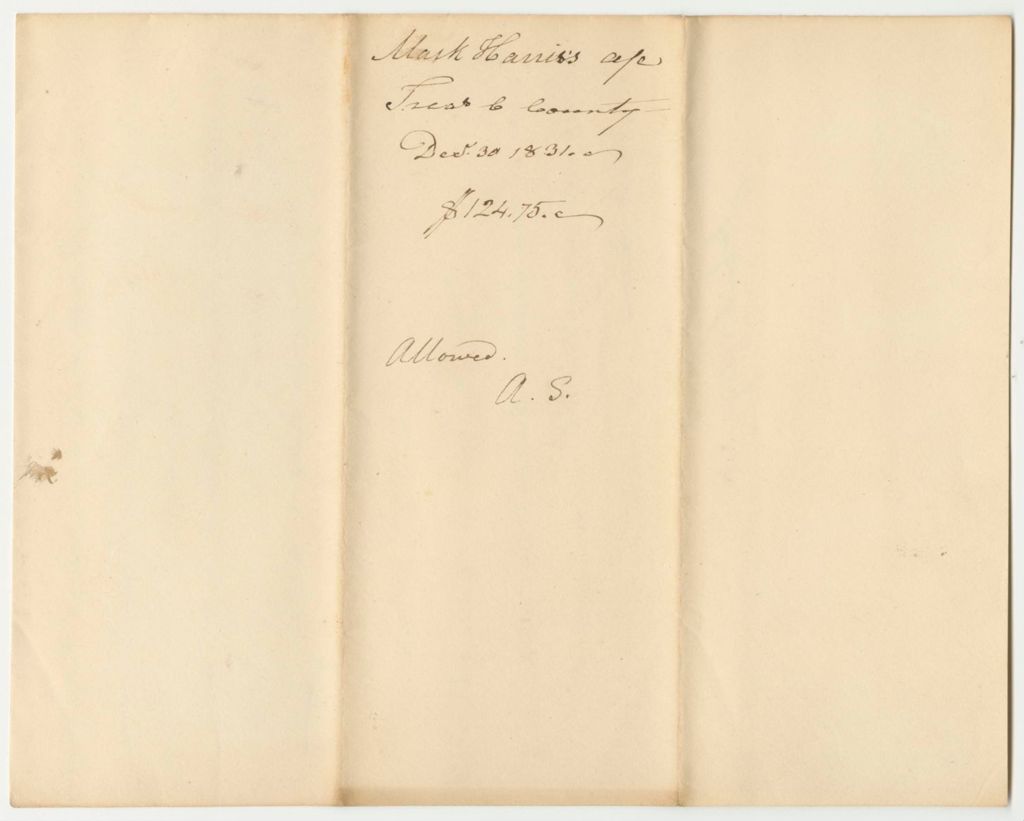 Mark Harris's a/c
Treas C County
Dec. 30 1831.
$124.75.
Allowed.
A. S.